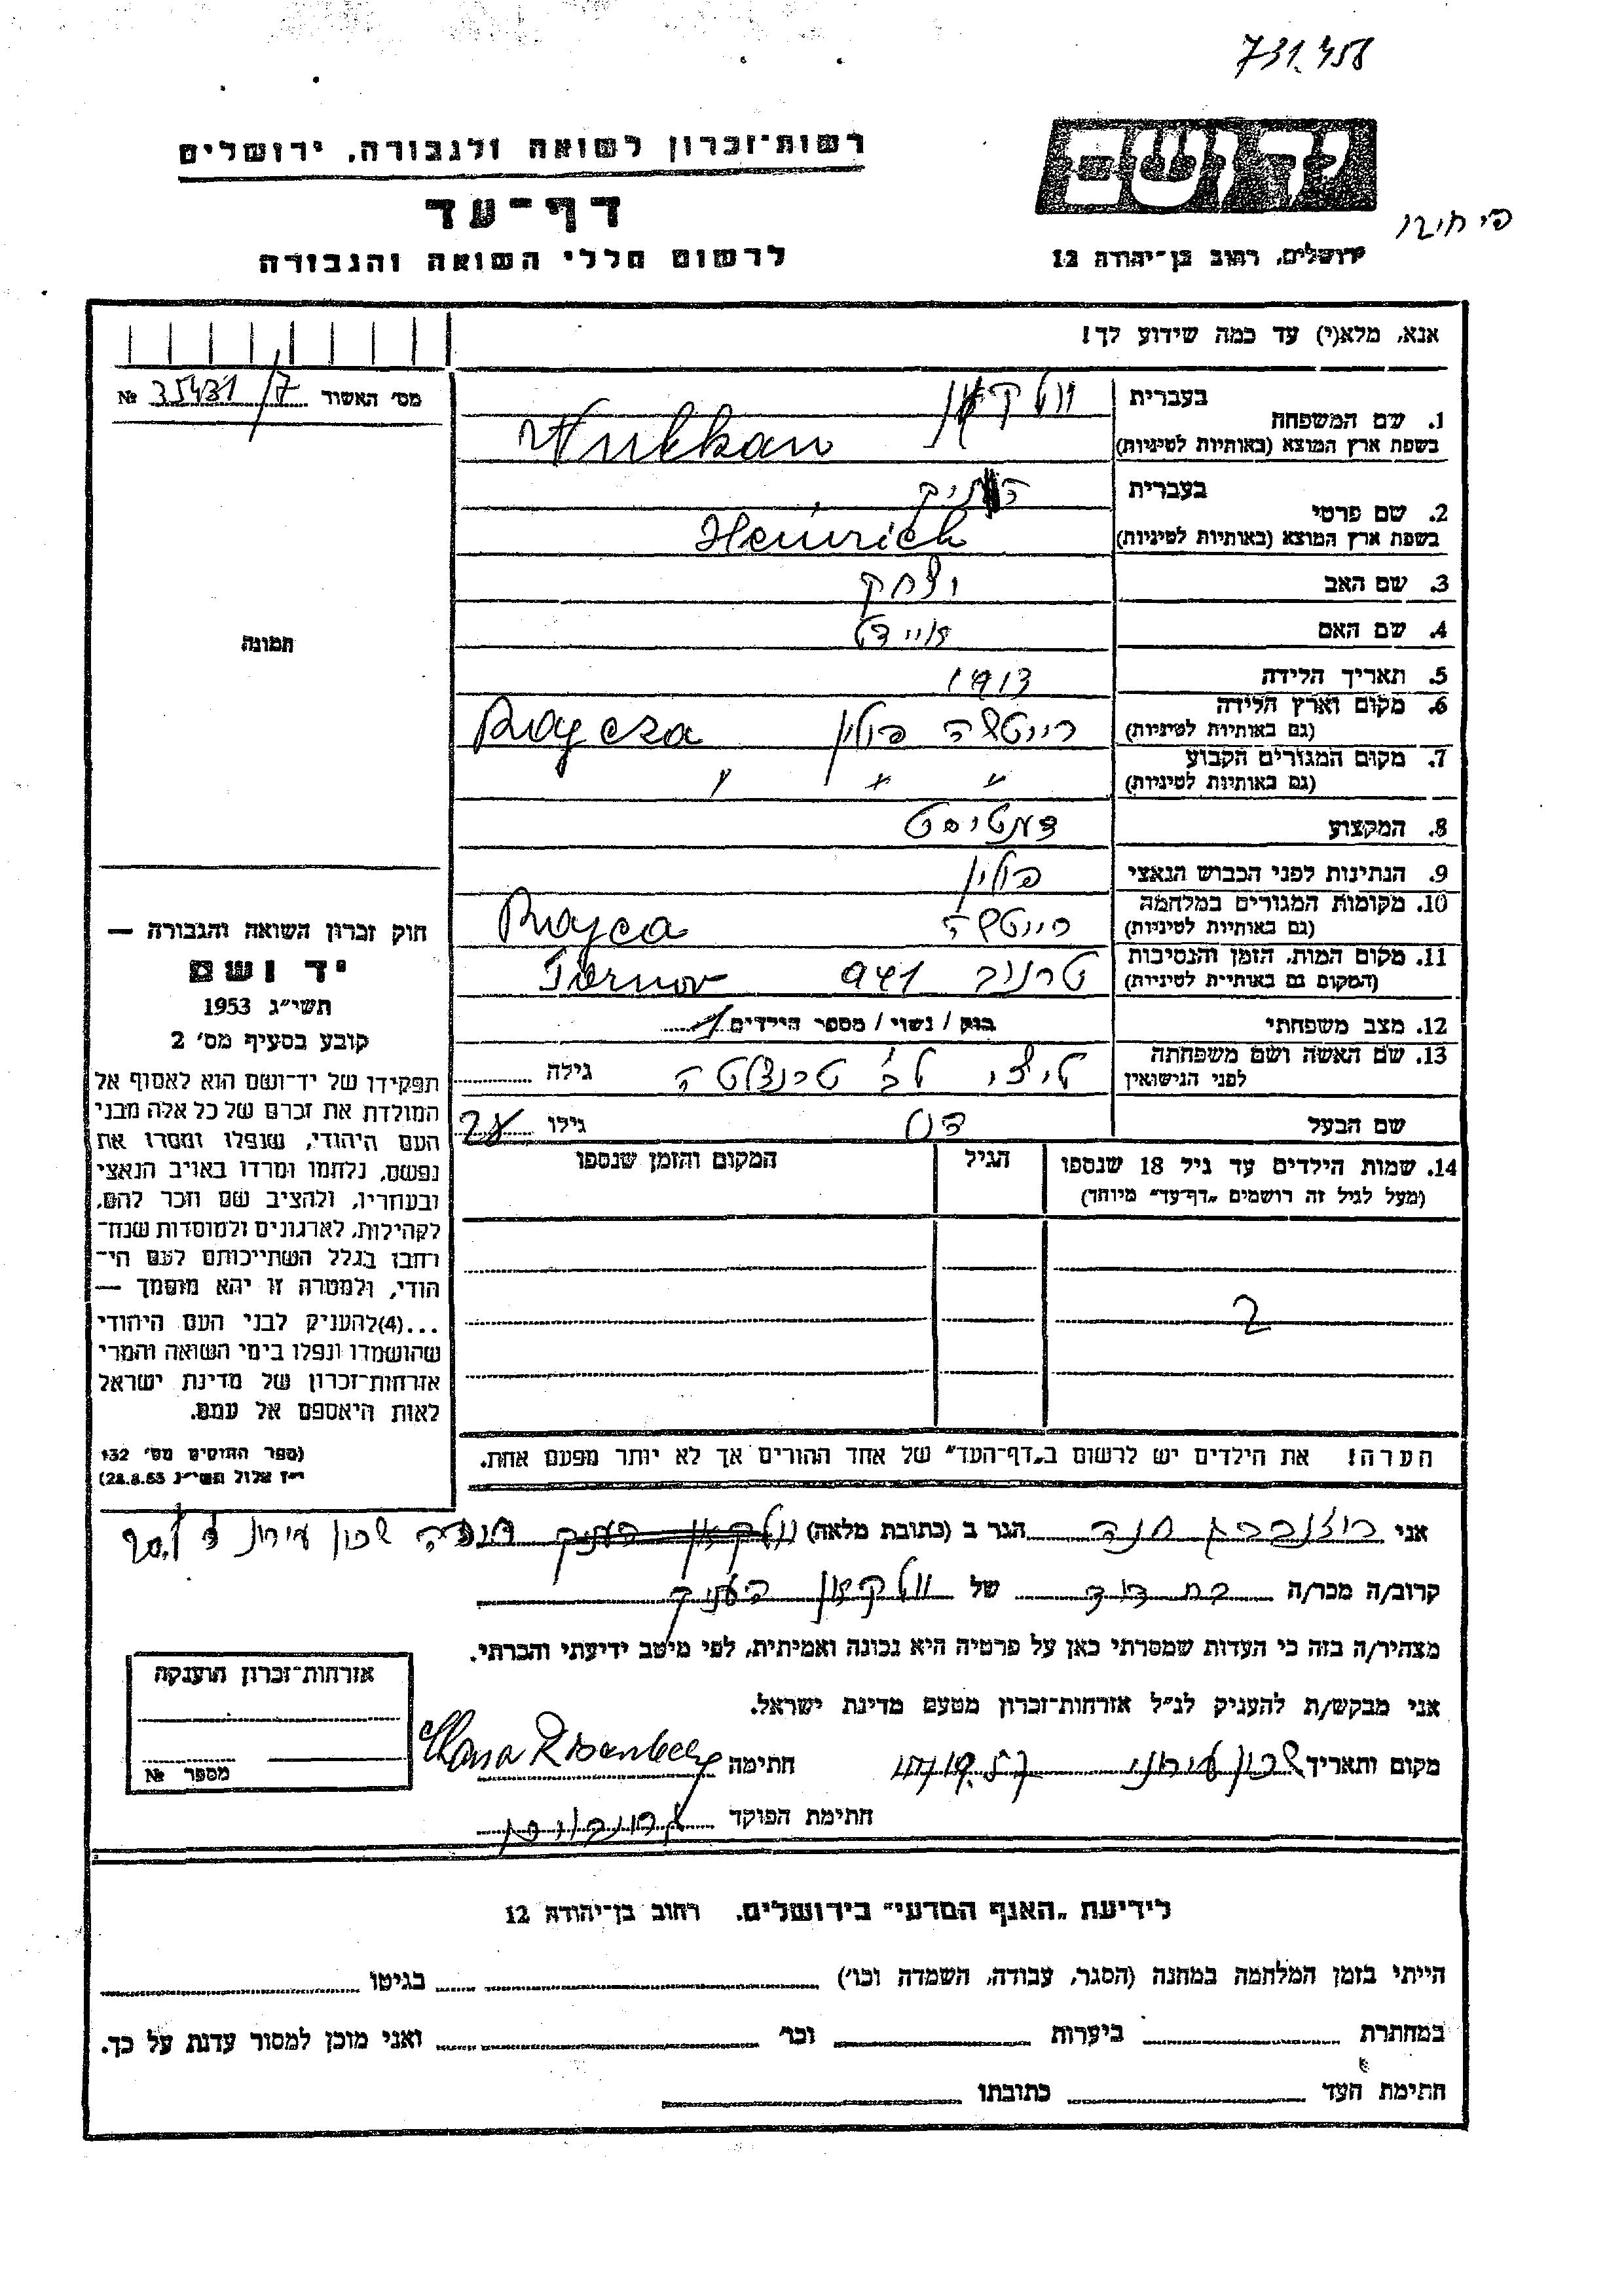 731.458
רשות־זכרון לשואה ולגבורה, ירושלים
דף־עד
לרשום חללי השואה והגבורה
ידושם
ירושלים, רחוב בן־יהודה 12
אנא, מלא(י) עד כמה שידוע לך!
מס׳ האשור 35431/7 №
1. שם המשפחה
בעברית וולקאן
בשפת ארץ המוצא (באותיות לטיניות) Wulkan
2. שם פרטי
בעברית
בשפת ארץ המוצא (באותיות לטיניות) Heinrich
3. שם האב יצחק
4. שם האם
5. תאריך הלידה 1913
6. מקום וארץ הלידה
(גם באותיות לטיניות) פולין Raycza
7. מקום המגורים הקבוע
(גם באותיות לטיניות) " " "
8. המקצוע דנטיסט
9. הנתינות לפני הכבוש הנאצי פולין
10. מקומות המגורים במלחמה
(גם באותיות לטיניות) Rayca
11. מקום המות, הזמן והנסיבות
(המקום גם באותיות לטיניות) טרנוב 941 Tarnov
12. מצב משפחתי רווק / נשוי / מספר הילדים
13. שם האשה ושם משפחתה
לפני הנישואין
גילה
שם הבעל
גילו 28
14. שמות הילדים עד גיל 18 שנספו
(מעל לגיל זה רושמים „דף־עד״ מיוחד)
הגיל
המקום והזמן שנספו
2
הערה! את הילדים יש לרשום ב„דף־העד״ של אחד ההורים אך לא יותר מפעם אחת.
תמונה
חוק זכרון השואה והגבורה —
יד ושם
תשי״ג 1953
קובע בסעיף מס׳ 2
תפקידו של יד־ושם הוא לאסוף אל
המולדת את זכרם של כל אלה מבני
העם היהודי, שנפלו ומסרו את
נפשם, נלחמו ומרדו באויב הנאצי
ובעוזריו, ולהציב שם וזכר להם,
לקהילות, לארגונים ולמוסדות שנח־
רבו בגלל השתייכותם לעם הי־
הודי, ולמטרה זו יהא מוסמך —
...(4)להעניק לבני העם היהודי
שהושמדו ונפלו בימי השואה והמרי
אזרחות־זכרון של מדינת ישראל
לאות היאספם אל עמם.
(ספר החוקים מס׳ 132
י״ז אלול תשי״ג 28.8.53)
אני רוזנברג חנה הגר ב (כתובת מלאה) שכון עירוני
קרוב/ה מכר/ה בת דוד של וולקאן
מצהיר/ה בזה כי העדות שמסרתי כאן על פרטיה היא נכונה ואמיתית, לפי מיטב ידיעתי והכרתי.
אני מבקש/ת להעניק לנ״ל אזרחות־זכרון מטעם מדינת ישראל.
מקום ותאריך שכון עירוני חתימה Chana Rosenberg
חתימת הפוקד
אזרחות־זכרון הוענקה
מספר №
לידיעת „האגף המדעי״ בירושלים, רחוב בן־יהודה 12
הייתי בזמן המלחמה במחנה (הסגר, עבודה, השמדה וכו׳) בגיטו
במחתרת ביערות וכו׳ ואני מוכן למסור עדות על כך.
חתימת העד כתובתו